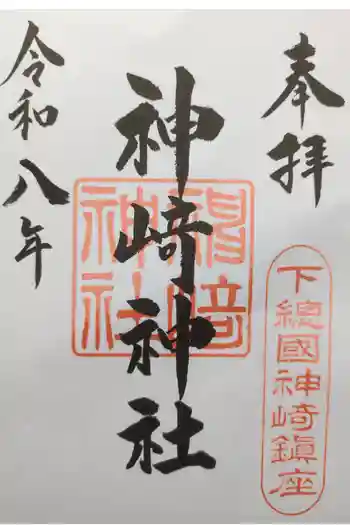 奉拝
下總國神崎鎮座
神崎神社
神崎神社
令和八年